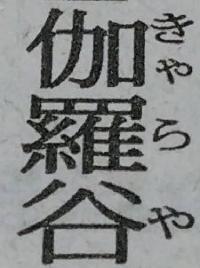 伽羅谷
きゃらや